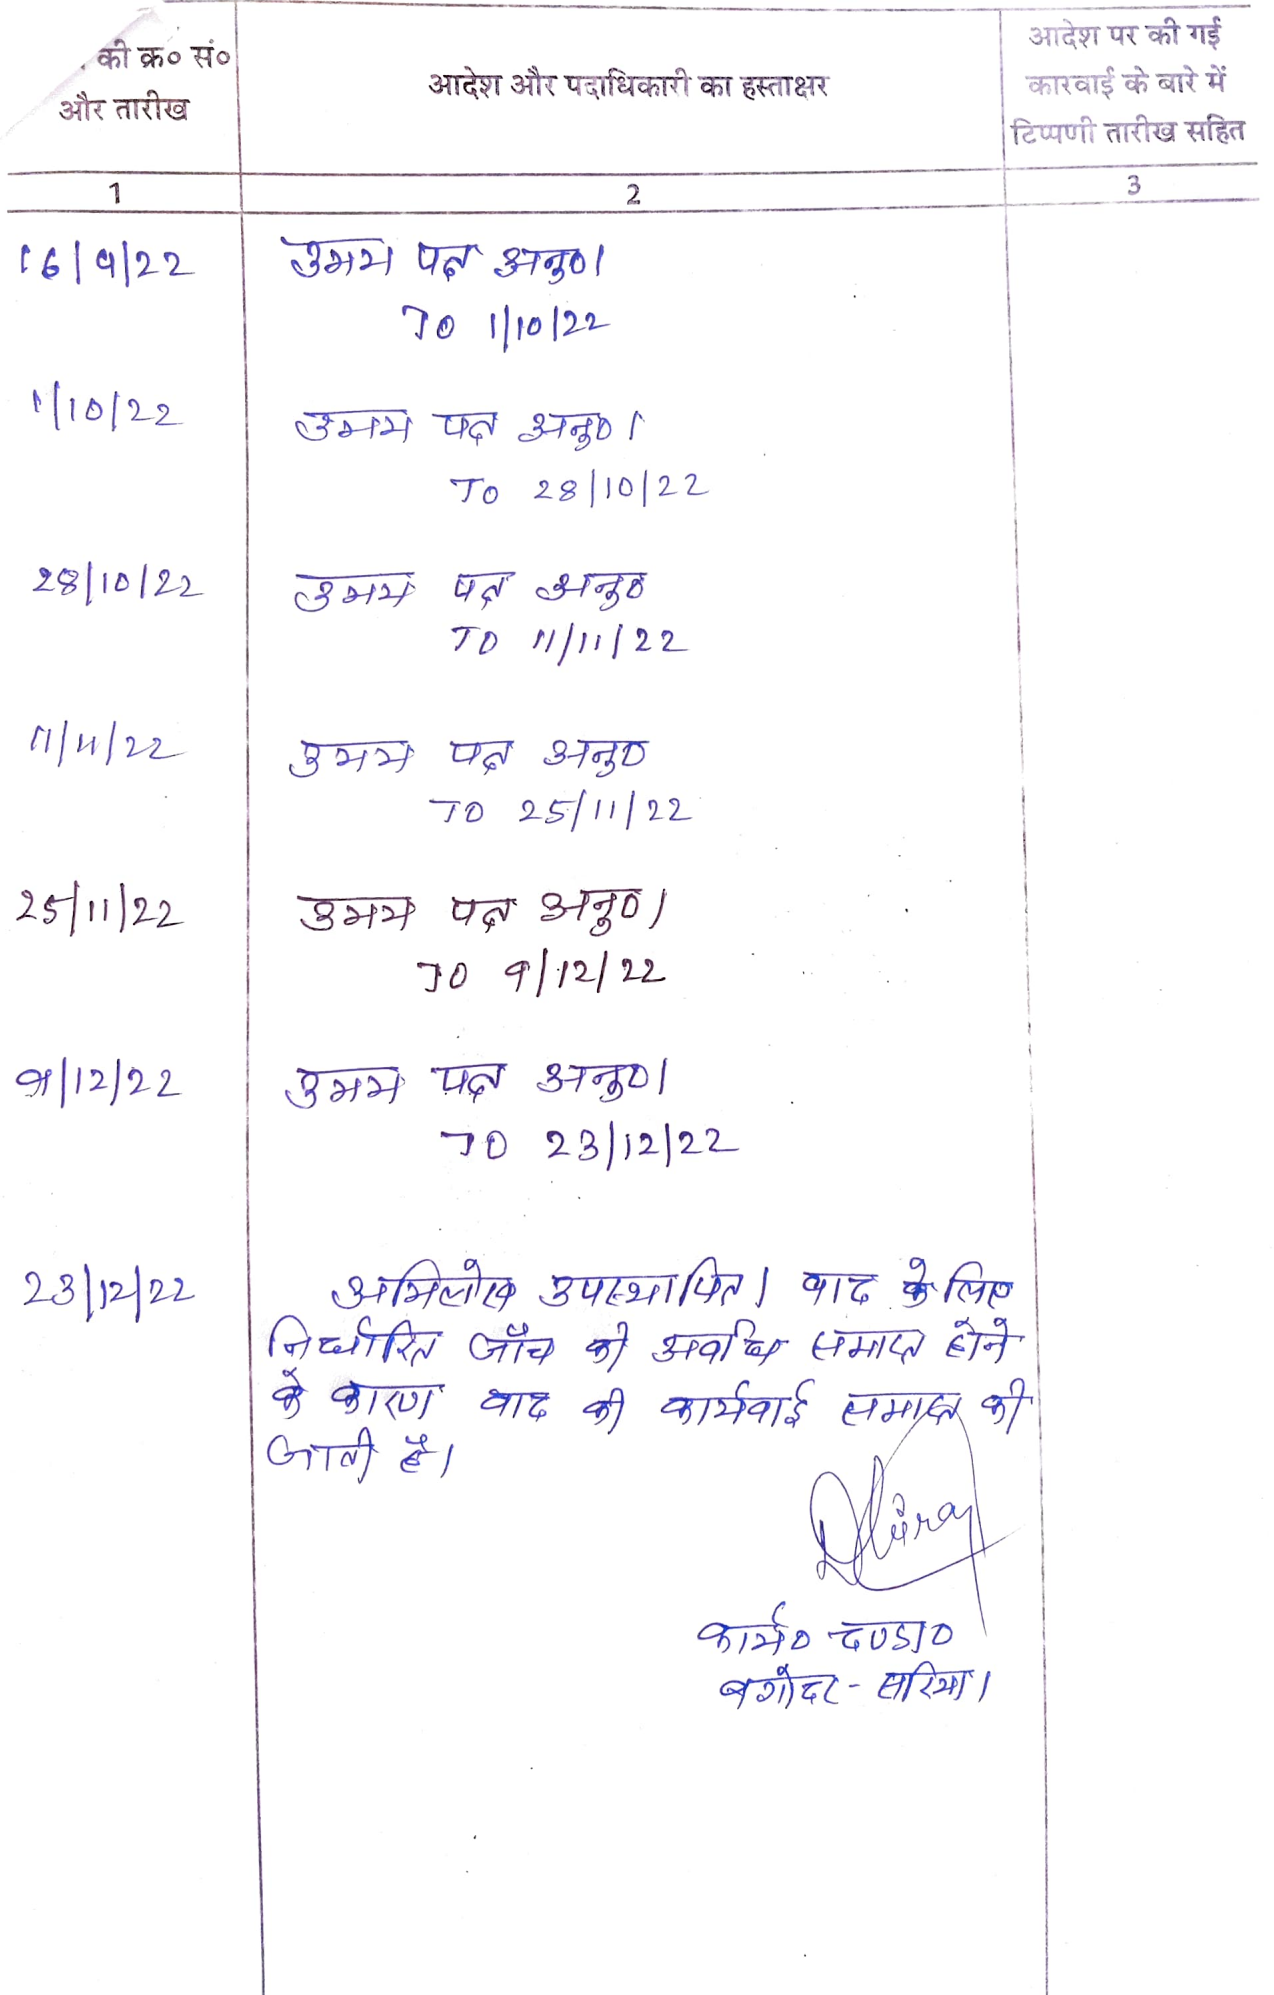 की क्र० सं०
और तारीख
आदेश और पदाधिकारी का हस्ताक्षर
आदेश पर की गई
कारवाई के बारे में
टिप्पणी तारीख सहित
1 2 3
16/9/22 उभय पक्ष अनु०।
TO 1/10/22
1/10/22 उभय पक्ष अनु०।
TO 28/10/22
28/10/22 उभय पक्ष अनु०
TO 11/11/22
11/11/22 उभय पक्ष अनु०
TO 25/11/22
25/11/22 उभय पक्ष अनु०।
TO 9/12/22
9/12/22 उभय पक्ष अनु०।
TO 23/12/22
23/12/22 अभिलेख उपस्थापित। वाद के लिए
निर्धारित जाँच की अवधि समाप्त होने
के कारण वाद की कार्यवाई समाप्त की
जाती है।
कार्य० दण्डा०
बगोदर - सरिया।